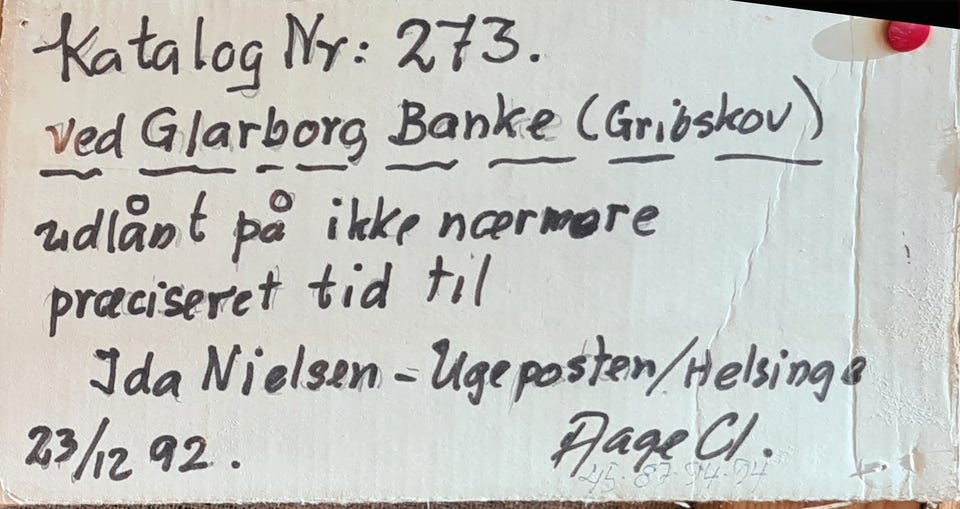 Katalog Nr: 273.
ved Glarborg Banke (Gribskov)
udlånt på ikke nærmere
præciseret tid til
Ida Nielsen - Ugeposten/Helsinge
23/12 92. Aage Cl.
45-87-94-94